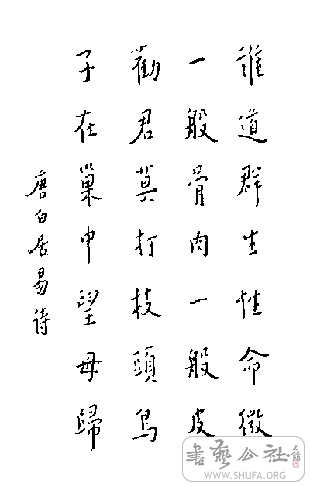 誰道群生性命微
一般骨肉一般皮
勸君莫打枝頭鳥
子在巢中望母歸
唐白居易詩
書藝公社
WWW.SHUFA.ORG